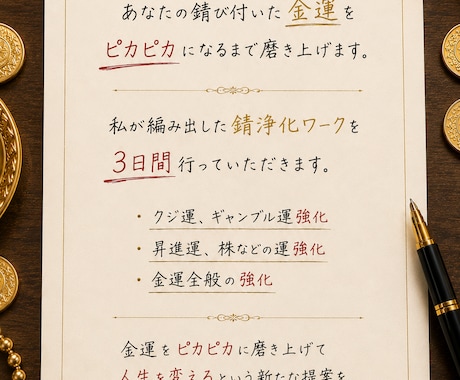 あなたの錆び付いた金運を
ピカピカになるまで磨き上げます。
私が編み出した錆浄化ワークを
3日間行っていただきます。
・クジ運、ギャンブル運強化
・昇進運、株などの運強化
・金運全般の強化
金運をピカピカに磨き上げて
人生を変えるという新たな提案を